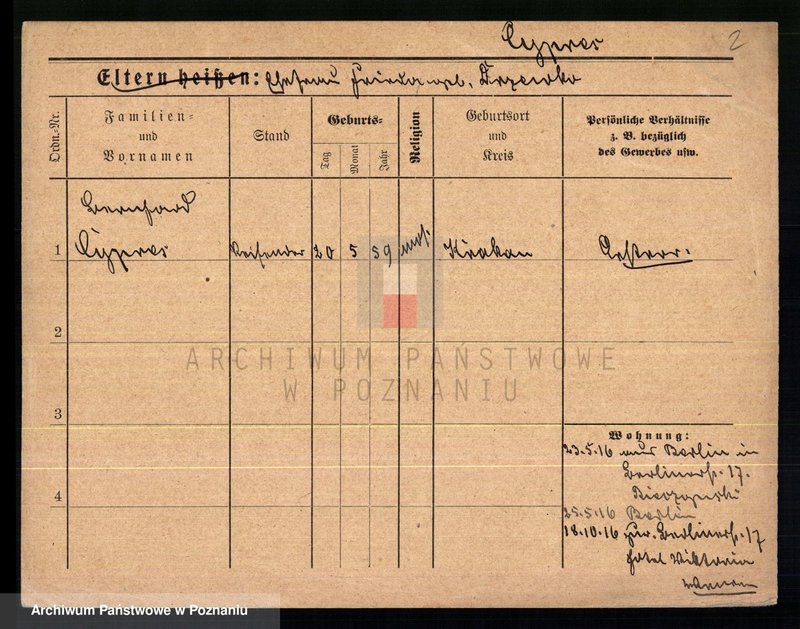 Cypres 2
Eltern heißen: Ehefrau Frieda geb.
Ordn.-Nr.
Familien- und Vornamen
Stand
Geburts-
Tag
Monat
Jahr
Religion
Geburtsort und Kreis
Persönliche Verhältnisse z. B. bezüglich des Gewerbes usw.
Bernhard
1 Cypres Reisender 20 5 59 mos. Krakau Oesterr.
2
ARCHIWUM PAŃSTWOWE
W POZNANIU
3
Wohnung:
23.5.16 aus Berlin in
Berlinerstr. 17.
4
25.5.16 Berlin
18.10.16 zur. Berlinerstr. 17
Hotel Viktoria
Archiwum Państwowe w Poznaniu